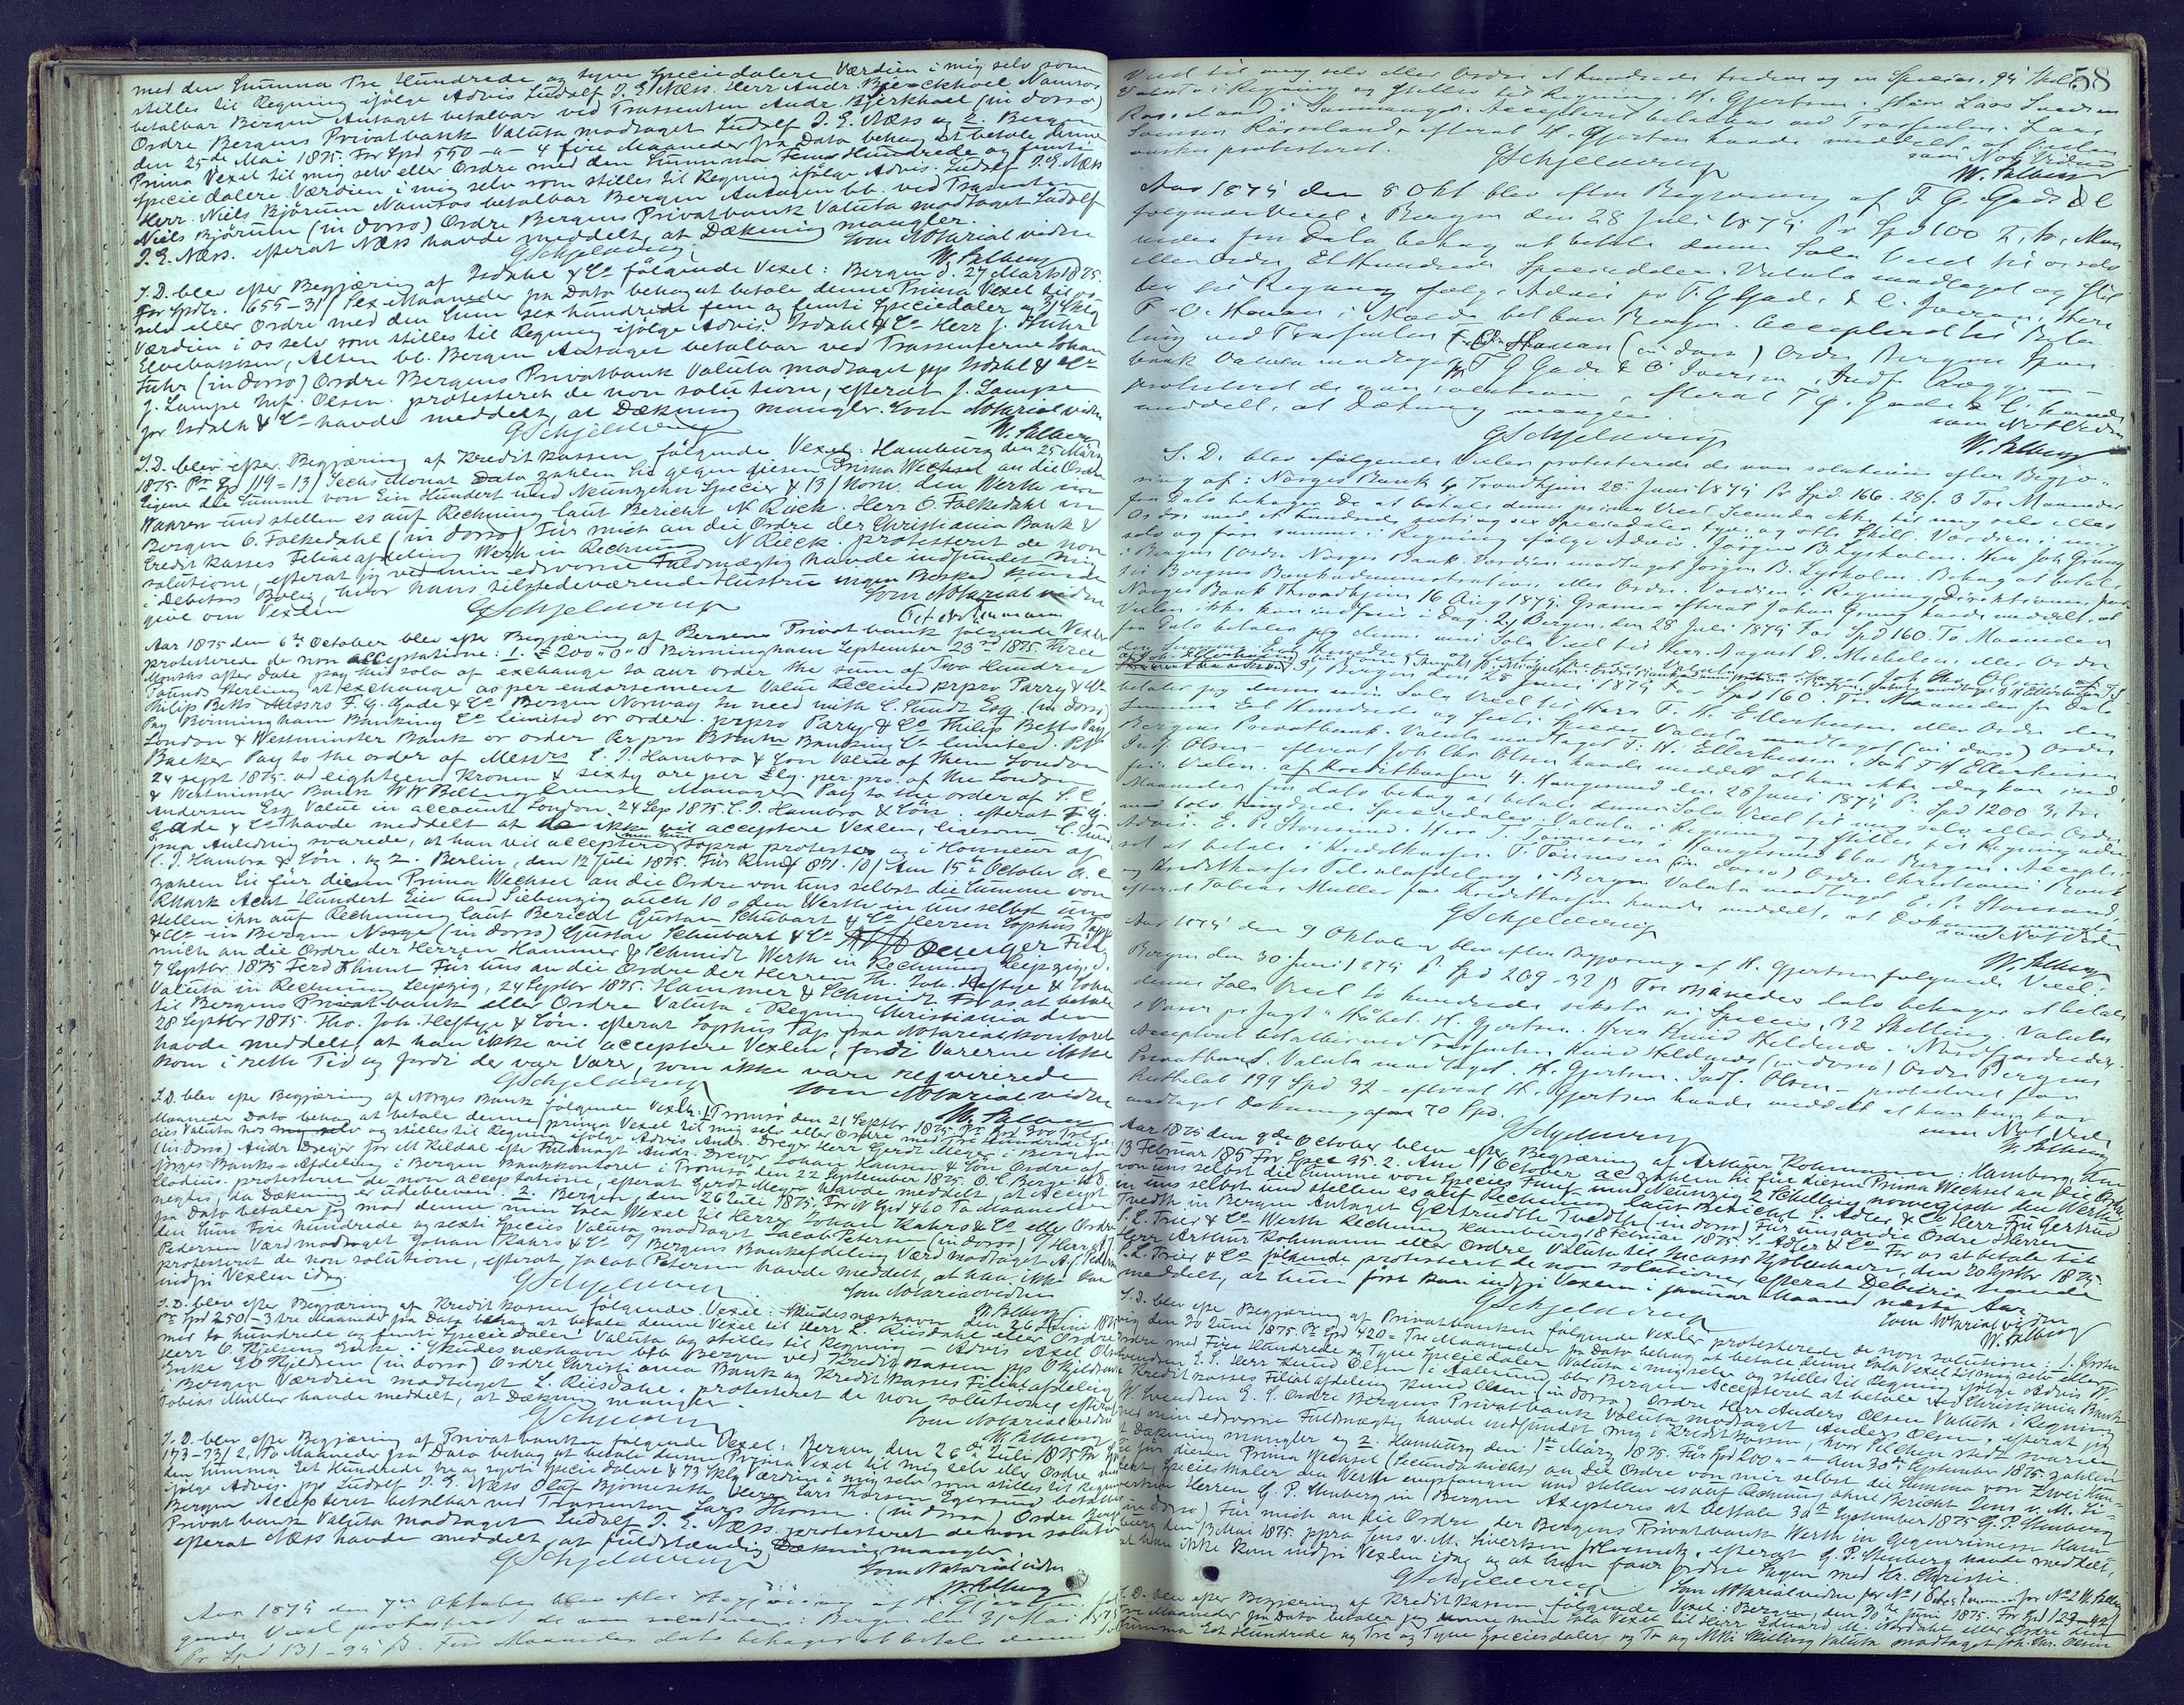 med den Summa Tre Hundrede og tyve Speciedalere Værdien i mig selv som
stilles til Regning ifølge Advis Ludolf J. E. Næss. Herr Andr. Namsos
betalbar Bergen Antaget betalbar ved Trassenten Andr. (in dorso)
Ordre Bergens Privatbank Valuta modtaget Ludolf J. E. Næss og 2. Bergen
den 25de Mai 1875. For Spd 550 -"- 4 fire Maaneder fra Dato behag at betale denne
Prima Vexel til mig selv eller Ordre med den Summa Fem Hundrede og femti
Speciedalere Værdien i mig selv som stilles til Regning ifølge Advis. Ludolf J. E. Næss
Herr Niels Bjørum Namsos betalbar Bergen Antagen bb. ved Trassenten
Niels Bjørum (in dorso) Ordre Bergens Privatbank Valuta modtaget Ludolf
J. E. Næss. efterat Næss havde meddelt, at Dækning mangler.
GSchjelderup Som Notarial vidne
W. Falberg
S.D. blev efter Begjæring af Isdahl & Co følgende Vexel: Bergen d. 27 Marts 1875.
For Spdlr. 655-31/ Sex Maaneder fra Dato behag at betale denne Prima Vexel til os
selv eller Ordre med den Sum sex hundrede fem og femti Speciedaler og 31 Skilg
Værdien i os selv som stilles til Regning ifølge Advis. Isdahl & Co Herr J. Fuhr
Elvebakken, Alten bb. Bergen Antaget betalbar ved Trassenterne Johan
Fuhr (in dorso) Ordre Bergens Privatbank Valuta modtaget pp Isdahl & Co
J. Lampe Olsen. protesteret de non solutione, efterat J. Lampe
for Isdahl & Co havde meddelt, at Dækning mangler. Som Notarial vidne
GSchjelderup W. Falberg
S.D. blev efter Begjæring af Kreditkassen følgende Vexel: Hamburg den 25 März
1875. Pr Spd 119-13/ Sechs Monat Dato zahlen Sie gegen diesen Prima Wechsel an die Ordre
Eigene die Summe von Ein Hundert und Neunzehn Species & 13/ Norw. den Werth in
Waaren und stellen es auf Rechnung laut Bericht N Rieck. Herr O. Falkedahl in
Bergen O. Falkedahl (in dorso) Für mich an die Ordre der Christiania Bank &
Credit Kasses Filialafdeling Werth in Rechnung N Rieck. protesteret de non
solutione, efterat jeg ved min edsvorne Fuldmægtig havde indfundet mig
i Debitors Bolig, hvor hans tilstedeværende Hustru ingen Besked kunde
give om Vexlen Som Notarial vidne
GSchjelderup
Aar 1875 den 6te October blev efter Begjæring af Bergens Privatbank følgende Vexler
protesterede de non acceptatione: 1. £200 " 0 " 0 Birmingham September 23rd 1875 Three
Months after date pay this sola of exchange to our order the sum of Two Hundred
Pounds Sterling at exchange as per endorsement Value Received prpro Parry & Co
Philip Betts Messrs F. G. Gade & Co Bergen Norway In need with C. Sundt Esq. (in dorso)
Pay Birmingham Banking Co limited or order. prpro Parry & Co Philip Betts Pay
London & Westminster Bank or order Per pro Banking Co limited.
Backer Pay to the order of Messrs C. J. Hambro & Son Value of Them London
24 Sept 1875. at eighteen Kronen & sixty øre per £lg. per pro. of the London
& Westminster Bank Manager Pay to the order of S. C.
Andersen Esq Value in account London 24 Sep 1875. C. J. Hambro & Søn. efterat F. G.
Gade & Co havde meddelt at de ikke vil acceptere Vexlen, ligesom C. Sundt
paa Anledning svarede, at han vil acceptere sopra protesto og i Honneur af
C. J. Hambro & Søn. og 2. Berlin, den 12 Juli 1875. Für Rmk 871.10/ Am 15te October a. c.
zahlen Sie für diesen Prima Wechsel an die Ordre von uns selbst die Summe von
RMark Acht Hundert Ein und Siebenzig auch 10 den Werth in uns selbst und
stellen ihn auf Rechnung laut Bericht Gustav Schubart & Co Herren Sophus Pap
& Co in Bergen Norge (in dorso) Gustav Schubart & Co
mich an die Ordre der Herren Hammer & Schmidt Werth in Rechnung Leipzig, d.
7 Septbr 1875 Ferd Für uns an die Ordre der Herren Th. Joh. Heftye & Sohn
Valuta in Rechnung Leipzig, 24 Septbr 1875. Hammer & Schmidt For os at betale
til Bergens Privatbank eller Ordre Valuta i Regning Christiania den
28 Septbr 1875. Tho. Joh. Heftye & Søn. efterat Sophus Pap paa Notarialkontoret
havde meddelt, at han ikke vil acceptere Vexlen, fordi Varerne ikke
kom i rette Tid og fordi der var Varer, som ikke vare reqvirerede
GSchjelderup Som Notarial vidne
W. Falberg
S.D. blev efter Begjæring af Norges Bank følgende Vexler: 1. Tromsø den 21 Septbr 1875. Pr Spd 300 Tre
Maaneder Dato behag at betale denne prima Vexel til mig selv eller Ordre med Tre Hundrede
cies Valuta hos mig selv og stilles til Regning ifølge Advis Andr. Dreyer Herr Gerdt Meyer i Bergen
(in dorso) Andr Dreyer for M Kildal efter Fuldmagt Andr. Dreyer Johan Hansen & Søn Ordre af
Norges Banks Afdeling i Bergen Bankkontoret i Tromsø den 22 September 1875. O. C. Berge
Clodius. protesteret de non acceptatione, efterat Gerdt Meyer havde meddelt, at Accept
negtes, da Dækning er udebleven. 2. Bergen, den 26 Juli 1875. For # Spd 460 To Maaneder
fra Dato betaler jeg mod denne min Sola Wexel til Herr Johan Rahrs & Co eller Ordre
den Sum Fire hundrede og sexti Species Valuta modtaget Jacob Petersen (in dorso)
Pedersen Værd modtaget Johan Rahrs & Co Bergens Bankafdeling Værd modtaget
protesteret de non solutione, efterat Jacob Petersen havde meddelt, at han ikke kan
indfri Vexlen idag. Som Notarial vidne
GSchjelderup W. Falberg
S.D. blev efter Begjæring af Kreditkassen følgende Vexel: Skudesnæshavn den 26 Juni 1875
Pr Spd 250 - 3 tre Maaneder fra Dato behag at betale denne Vexel til Herr L. Riisdahl eller Ordre
med to hundrede og femti Speciedaler Valuta og stilles til Regning - Advis Axel Olsen
Herr O. Kjelsens Enke i Skudesnæshavn bb Bergen ved Kreditkassen pp O Kjeldsens
Enke (in dorso) Ordre Christiania Bank og Kredit Kasses Filialafdeling
i Bergen Værdien modtaget L. Riisdahl. protesteret de non solutione, efterat
Tobias Müller havde meddelt, at Dækning mangler.
GSchjelderup Som Notarial vidne
W. Falberg
S.D. blev efter Begjæring af Privatbanken følgende Vexel: Bergen, den 26de Juli 1875 Pr Spd
173-73/ 2, to Maaneder fra Dato behag at betale denne Prima Vexel til mig selv eller Ordre med
den Summa Eet Hundrede tre og sytti Speciedalere & 73 Skilg Værdien i mig selv som stilles til Regning
ifølge Advis. pp Ludolf J. E. Næss Oluf Bjørneseth Herr Lars Thorsen Egersund betalbar
Bergen Accepteret betalbar ved Trassenten Lars Thorsen. (in dorso) Ordre Bergens
Privatbank Valuta modtaget Ludolf J. E. Næss. protesteret de non solutione
efterat Næss havde meddelt at fuldstændig Dækning mangler
GSchjelderup Som Notarial vidne
W. Falberg
Aar 1875 den 7de Oktober blev efter Begjæring af H. Gjertsen føl
gende Vexel protesteret de non solutione: Bergen den 31 Mai 1875
Pr Spd 131-94 ß. Fire Maaneder dato behager at betale denne
58
Vexel til mig selv eller Ordre et hundrede tredive og en Species. 94 Skill.
Valuta i Regning og stilles til Regning. H. Gjertsen. Herr Lars
i Accepteret betalbar ved Trassenten. Lars
efterat H. Gjertsen havde meddelt, at Vexlen
ønskes protesteret. som Not Vidne
GSchjelderup W. Falberg
Aar 1875 den 8 Okt blev efter Begjæring af F. G. Gade & C
følgende Vexel: Bergen den 28 Juli 1875 Pr Spd 100 2, to, Maa
neder fra Dato behag at betale denne Sola Vexel til os selv
eller ordre Et Hundrede Speciedaler. Valuta modtaget og stil
les til Regning ifølge Advis pr F. G. Gade & C. Iversen, Herr
F. O. Hanan i Molde betalbar Bergen. Accepteret til Beta
ling ved Trassenten F. O. Hanan (in dorso) Ordre Bergens Spare
bank Valuta modtaget F G Gade & C Iversen
protesteret de non solutione, efterat F. G. Gade & C. havde
meddelt, at Dækning mangler. som Not Vidne
GSchjelderup W. Falberg
S. D. blev følgende Vexler protesterede de non solutione efter Begjæ-
ring af: Norges Bank 1, Trondhjem 28 Juni 1875 Pr Spd. 166.28/. 3 Tre Maaneder
fra Dato behager De at betale denne prima Vexel Secunda ikke til mig selv eller
Ordre med et hundrede sexti og sex Speciedaler tyve og otte Skill. Værdien i mig
selv og føre summen i Regning ifølge Advis Jørgen B. Lysholm. Herr Joh Grung
i Bergen (Ordre Norges Bank. Værdien modtaget Jørgen B. Lysholm. Behag at betale
til Bergens Bankadministration eller Ordre. Værdien i Regning Direktionen for
Norges Bank Throndhjem 16 Aug 1875. efterat Johan Grung havde meddelt, at
Vexlen ikke kan indfries i Dag. 2, Bergen den 28 Juli 1875 For Spd 160. To Maaneder
fra Dato betaler jeg denne min Sola Vexel til Herr August D. Michelsen eller Ordre
3, Bergen den 28 Juni 1875 For Spd 160. Tre Maaneder fra Dato
betaler jeg denne min Sola Vexel til Herr F. H. Ellerhusen eller Ordre den
Summa Eet Hundrede og sexti Species Valuta modtaget (in dorso) Ordre
Bergens Privatbank. Valuta modtaget F. H. Ellerhusen.
Indf. Olsen - efterat Joh Chr Olsen havde meddelt at han ikke idag kan ind
fri Vexlen. af Kreditkassen 4. Haugesund den 28 Juni 1875 Pr. Spd 1200 3, tre
Maaneder fra dato behag at betale denne Sola Vexel til mig selv eller Ordre
Speciedaler. Valuta i Regning og stilles til Regning uden
Advis. E. P. Herr T. Tønnesen i Haugesund bbar Bergen. Accepte-
ret at betale i Kreditkassen. T. Tønnesen (in dorso) Ordre Christiania Bank
og Kreditkasses Filialafdeling i Bergen Valuta modtaget E. P.
efterat Tobias Müller for Kreditkassen havde meddelt, at Dækning mangler
som Not Vidne
GSchjelderup W. Falberg
Aar 1875 den 9 Oktober blev efter Begjæring af H. Gjertsen følgende Vexel:
Bergen den 30 Juni 1875 Pr Spd 269-32 ß Tre Maaneder dato behager at betale
denne Sola Vexel to hundrede seksti ni Species 32 Skilling Valuta
i Varer H. Gjertsen. Herr Knud i Nordfjordeidet.
Accepteret betalbar ved Trassenten Knud (in dorso) Ordre Bergens
Privatbank. Valuta modtaget. H. Gjertsen. Indf. Olsen - protesteret for
Restbeløb 199 Spd 32 - efterat H. Gjertsen havde meddelt at han kun har
modtaget Dækning for 70 Spd. som Not Vidne
GSchjelderup W. Falberg
Aar 1875 den 9de October blev efter Begjæring af Arthur Kohmann: Hamborg, den
13 Februar 1875 For Spec 95.2. Am 1 October a c zahlen Sie für diesen Prima Wechsel an die Ordre
von uns selbst die Summe von Species Fünf und Neunzig 2 Schilling norwegisch den Werth
in uns selbst und stellen es auf Rechnung laut Bericht S. Adler & Co Herr Gertrud
Tvedth in Bergen Antaget Gjertrudth Tvedth (in dorso) Für uns an die Ordre Herren
S. L. Trier & Co Werth Rechnung Hamburg 18 Februar 1875 S. Adler & Co For os at betale til
Herr Arthur Kohmann eller Ordre Valuta til Incasso Kjøbenhavn, den 20 Septbr 1875
S. L. Trier & Co følgende protesteret de non solutione, efterat Debitrix havde
meddelt, at hun først kan indfri Vexlen i Januar Maaned næste Aar
GSchjelderup Som Notarial vidne
W. Falberg
S.D. blev efter Begjæring af Privatbanken følgende Vexler protesterede de non solutione: 1. Ørsten
vig den 30 Juni 1875. Pr Spd 420= Tre Maaneder fra Dato behag at betale denne Sola Vexel til mig selv eller
Ordre med Fire Hundrede og Tyve Speciedaler Valuta i mig selv og stilles til Regning ifølge Advis W.
Svendsen E. S. Herr Knud Olsen i Aalesund bbr Bergen Accepteret at betale ved Christiania Bank
& Kreditkasses Filialafdeling Knud Olsen (in dorso) Ordre Herr Anders Olsen Valuta i Regning
W. Svendsen E. S. Ordre Bergens Privatbank Valuta modtaget Anders Olsen. efterat jeg
ved min edsvorne Fuldmægtig havde indfundet mig i Kreditkassen, hvor Pulchen stedt svarede
at Dækning mangler og 2. Hamburg den 1te März 1875. Für Spd 200 "-" Am den 30te September 1875. zahlen
Sie für diesen Prima Wechsel (Secunda nicht) an die Ordre von mir selbst die Summa von Zwei Hun-
dert Speciesthaler den Werth empfangen und stellen es auf Rechnung ohne Bericht Jens v. M. Si-
vertsen Herren G. P. Stenberg in Bergen Accepteres at bettale 30te September 1875 G. P. Stenberg
(in dorso) Für mich an die Ordre der Bergens Privatbank Werth in Gegenrimesse Ham-
burg den 13 Mai 1875. ppra Jens v. M. Sivertsen. efterat G. P. Stenberg havde meddelt,
at han ikke kan indfri Vexlen idag og at han faar ordne Sagen med Hr. Christie.
GSchjelderup Som Notarial vidne for No 1 for No 2 W. Falberg
S. D. blev efter Begjæring af Kreditkassen følgende Vexel: Bergen, den 30te Juni 1875. For Spd 123-42/
Tre Maaneder fra Dato betaler jeg denne min Sola Vexel til Herr Eduard M. Nordahl eller Ordre den
Summa Eet Hundrede og Tre og Tyve Speciesdaler, og To og Skilling Valuta modtaget Joh. Chr. Olsen